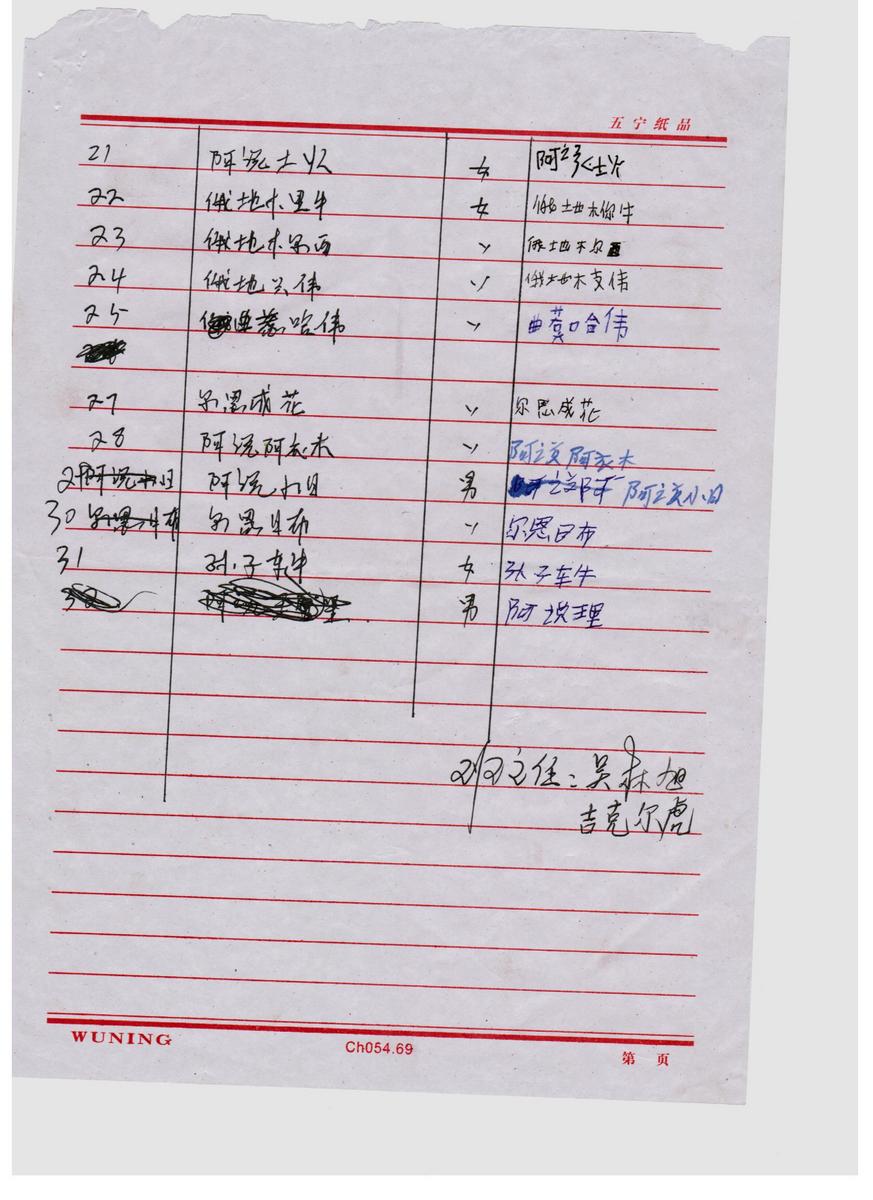 五宁纸品
21 阿说士火 女 阿说士火
22 俄地木里牛 女 俄地木你牛
23 俄地木尔西 〃 俄地木尔西
24 俄地公伟 〃 俄地木支伟
25 曲莫哈伟 〃 曲莫哈伟
27 尔恩成花 〃 尔恩成花
28 阿说阿衣木 〃 阿说阿衣木
29 阿说小日 男 阿说小日
30 尔恩日布 〃 尔恩日布
31 孙子车牛 女 孙子车牛
男 阿说理
班主任：吴林旭
吉克尔虎
WUNING Ch054.69 第 页